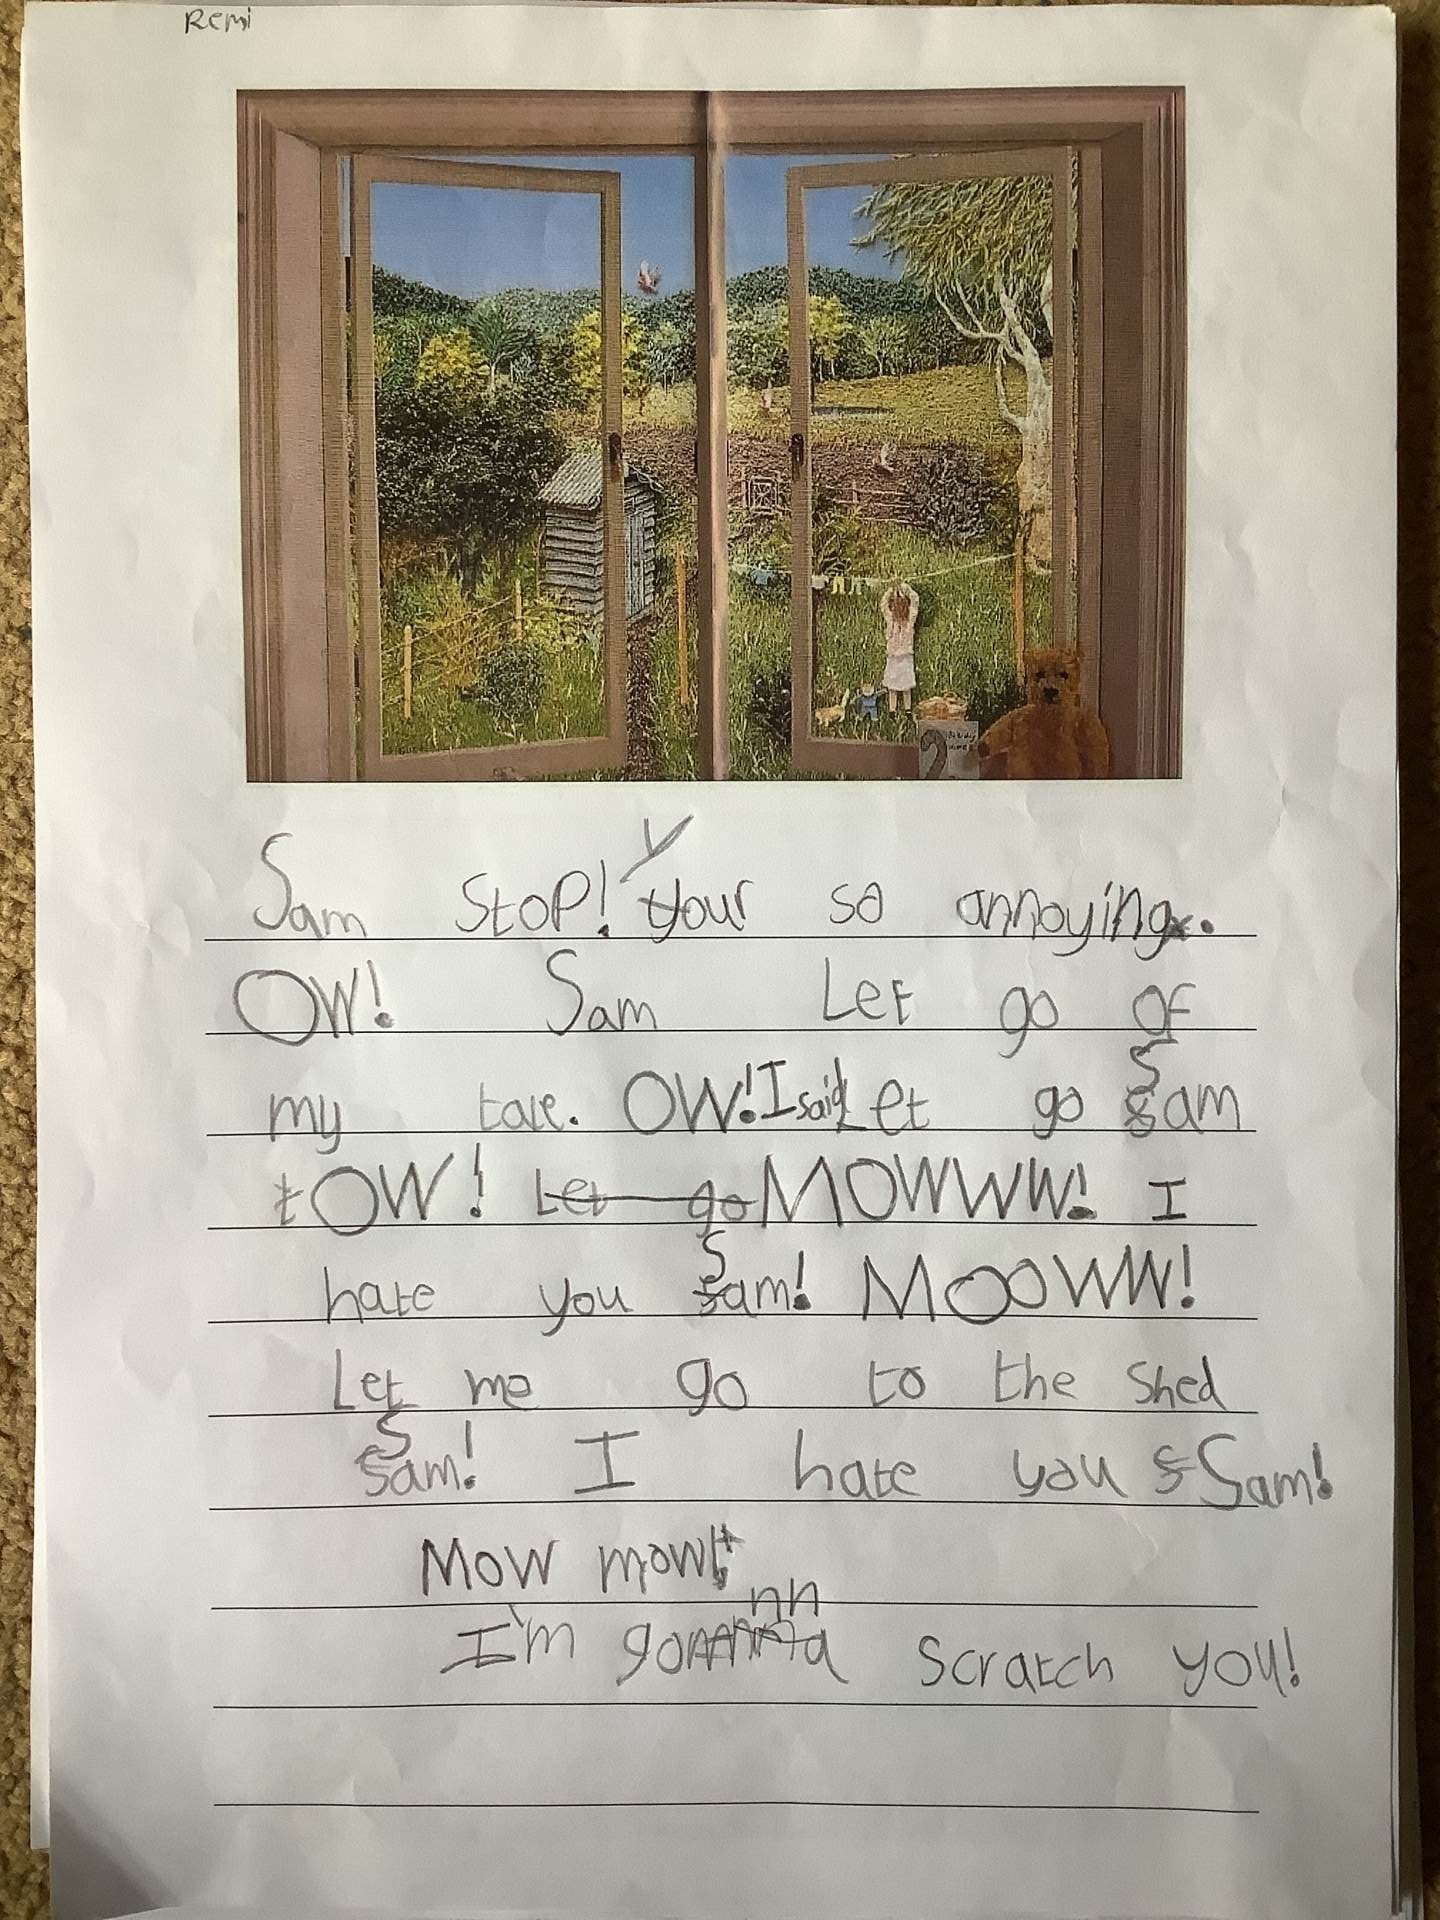 Remi
2
Sam StoP! Your so annoying.
OW! Sam Let go of
my tale. OW! I said Let go Sam
OW! Let go MOWWW! I
hate you Sam! MOOWW!
Let me go to the Shed
Sam! I hate you Sam!
MOW mow!
I'm gonna scratch you!